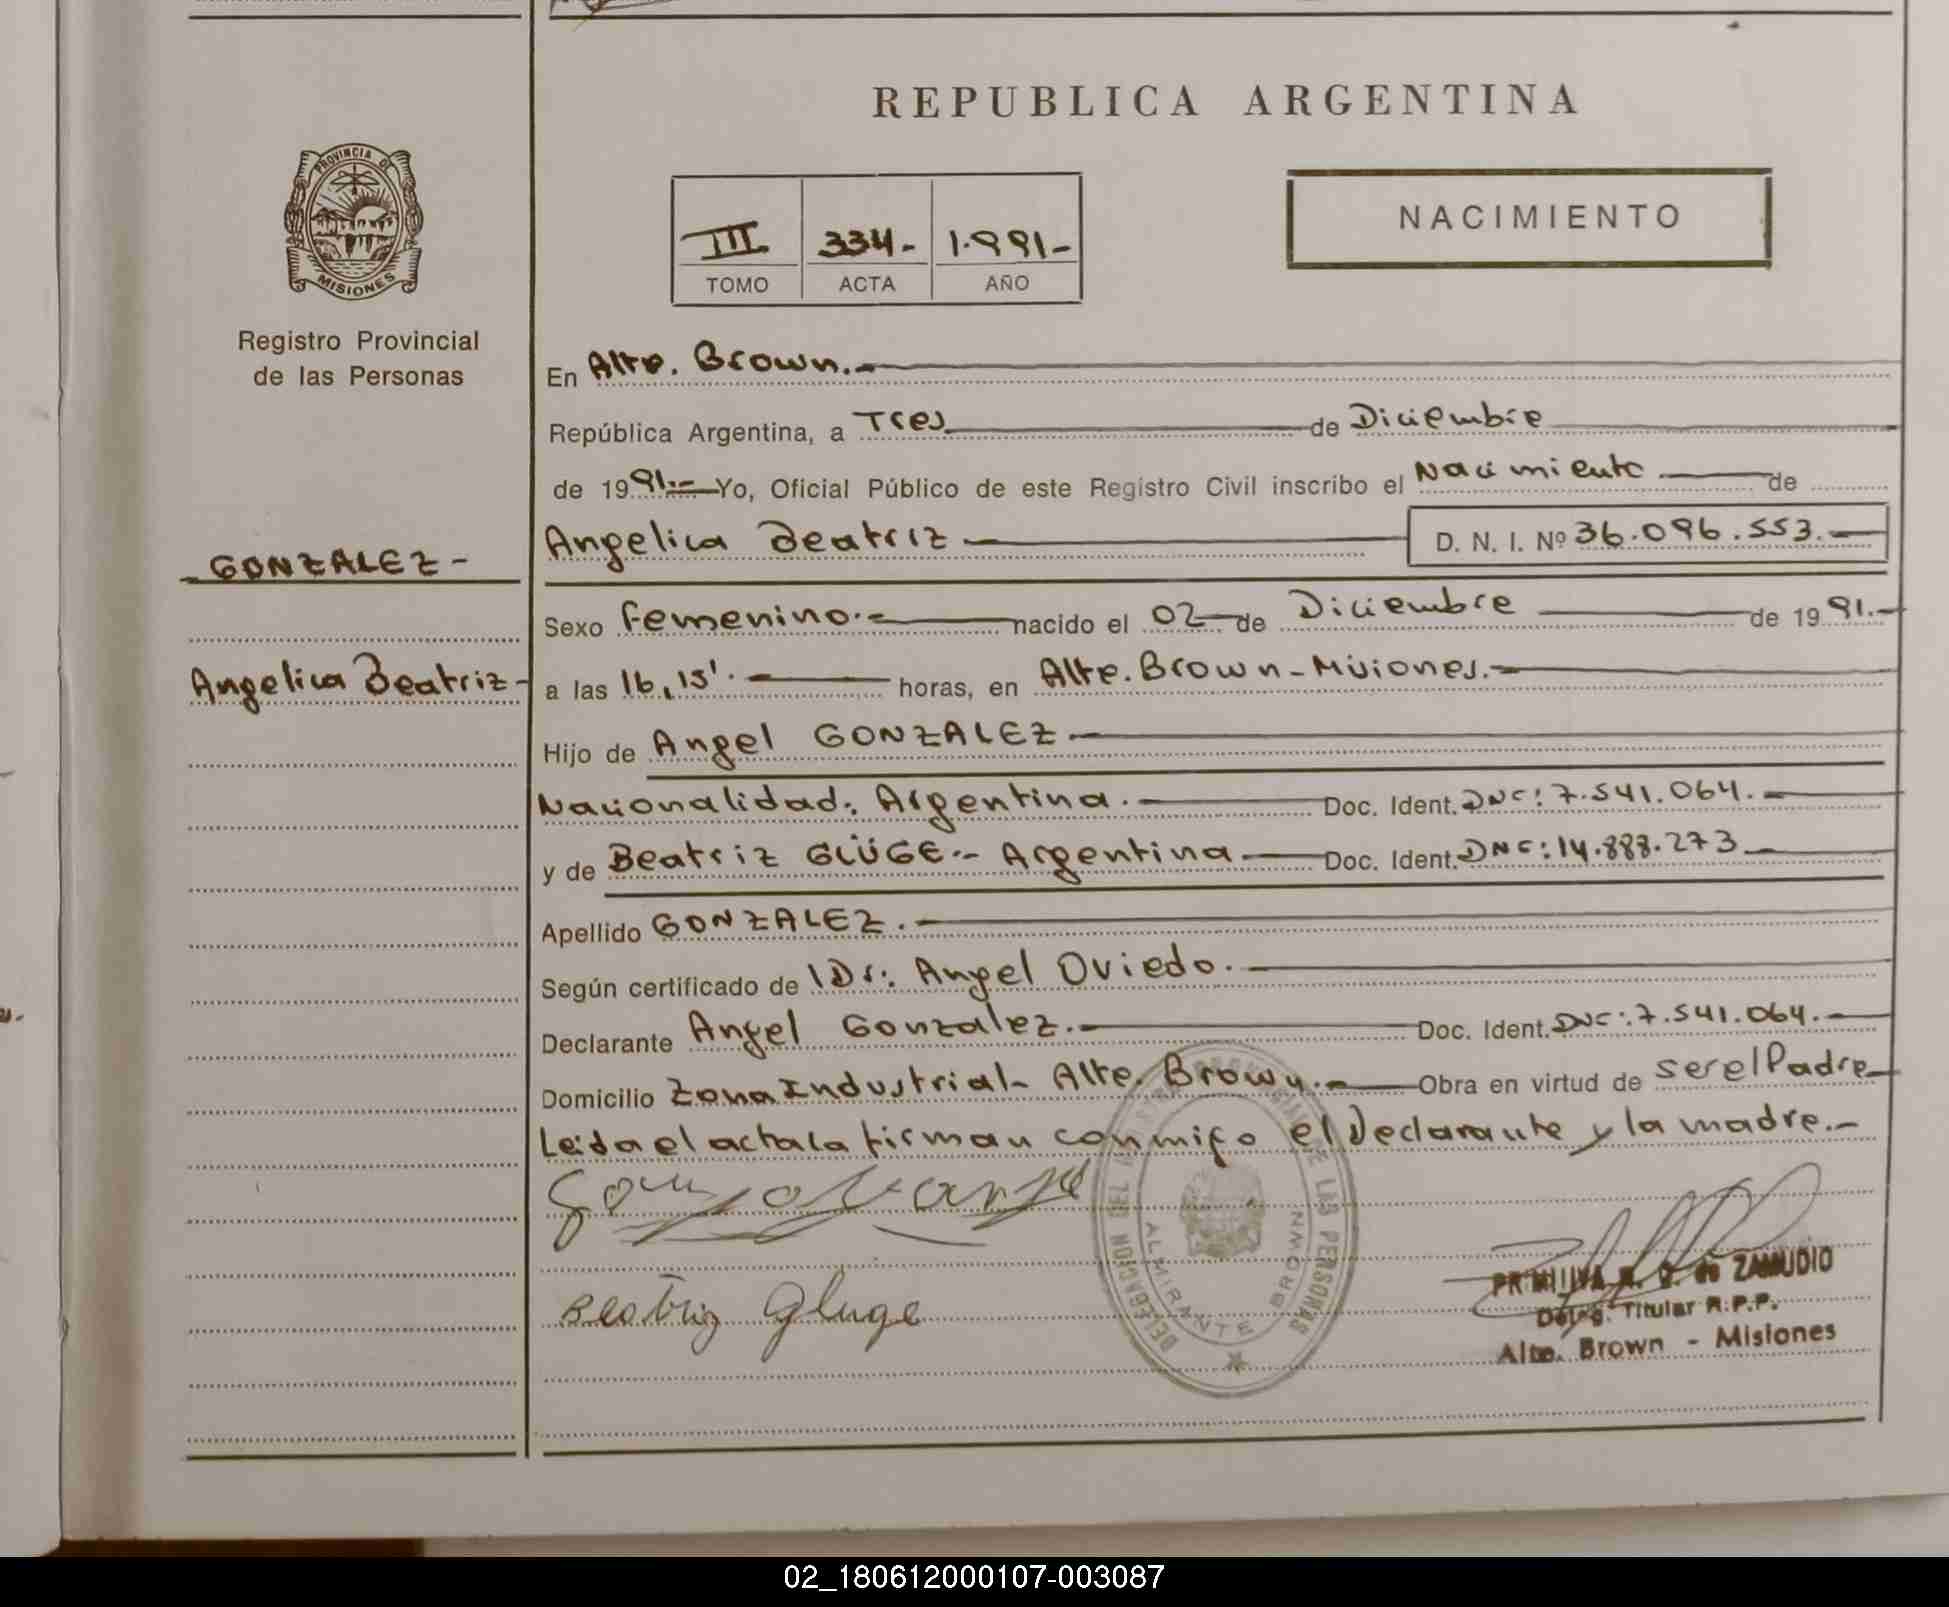 REPUBLICA ARGENTINA
PROVINCIA DE
MISIONES
Registro Provincial
de las Personas
III 334- 1.991-
TOMO ACTA AÑO
NACIMIENTO
En Alte. Brown.-
República Argentina, a Tres de Diciembre
de 1991.- Yo, Oficial Público de este Registro Civil inscribo el Nacimiento de
Angelica Beatriz D. N. I. Nº 36.096.553.-
GONZALEZ-
Sexo Femenino.- nacido el 02 de Diciembre de 1991.-
Angelica Beatriz-
a las 16,15'. horas, en Alte. Brown-Misiones.-
Hijo de Angel GONZALEZ.-
Nacionalidad: Argentina.- Doc. Ident. DNC: 7.541.064.-
y de Beatriz GLÜGE.- Argentina Doc. Ident. DNC: 14.888.273
Apellido GONZALEZ.-
Según certificado de Dr: Angel Oviedo.-
Declarante Angel Gonzalez.- Doc. Ident. DNC: 7.541.064.-
Domicilio Zona Industrial- Alte. Brown.- Obra en virtud de ser el Padre
Leida el acta la firman conmigo el Declarante y la madre.-
Beatriz Gluge
DELEGACION DEL DE LAS PERSONAS
ALMIRANTE BROWN
PRIMITIVA de ZAMUDIO
Deleg. Titular R.P.P.
Alte. Brown - Misiones
02_180612000107-003087